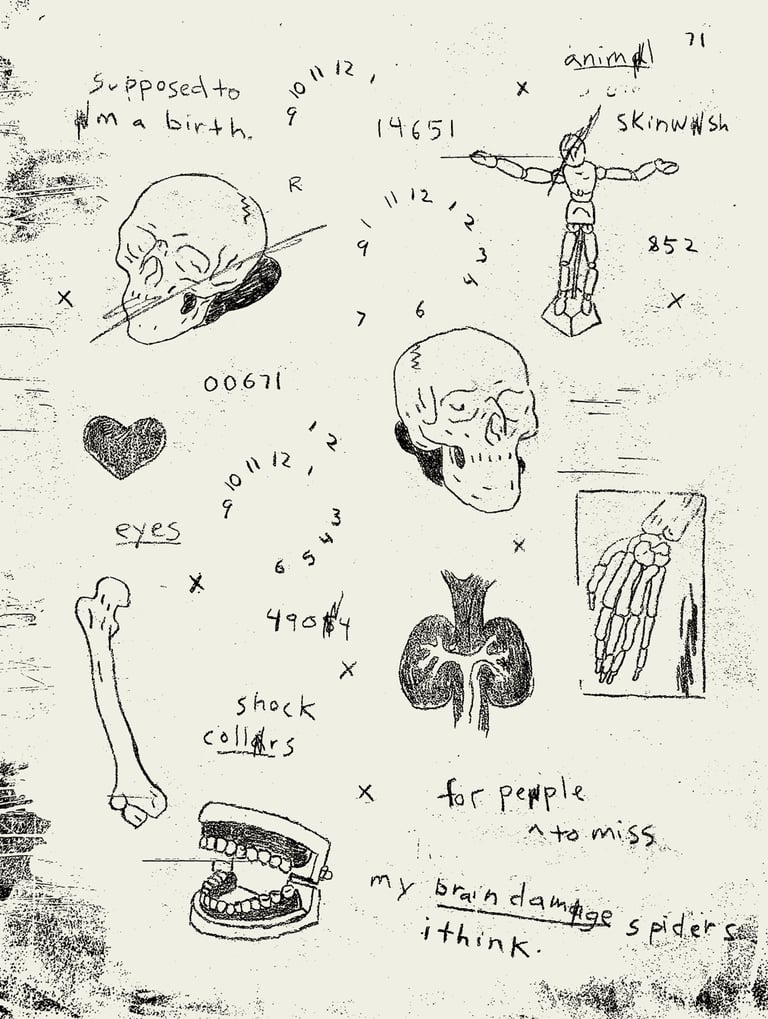 71
animal
supposed to
I'm a birth.
10 11 12 1
9
14651
skinwash
R
11 12 1 2
9 3
4
7 6
852
00671
1 2
10 11 12 1
9 3
4
6 5
eyes
490 4
shock
collars
for people
^ to miss
my brain damage spiders
i think.